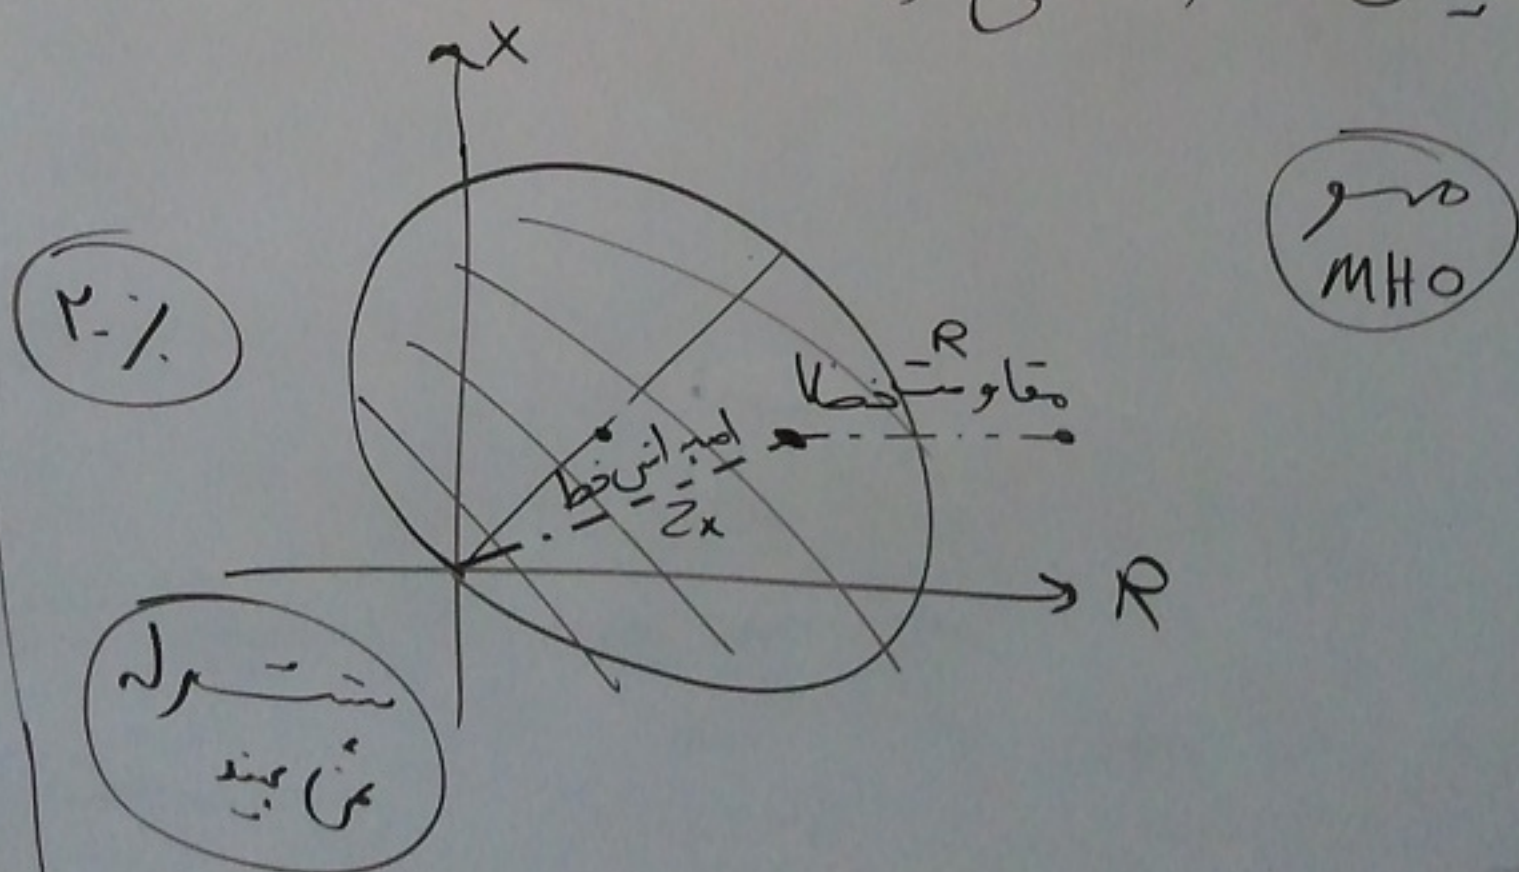 X
مهو
MHO
٢٠٪
R
مقاومت خطا
امپدانس خط
Zx
R
نمی بیند